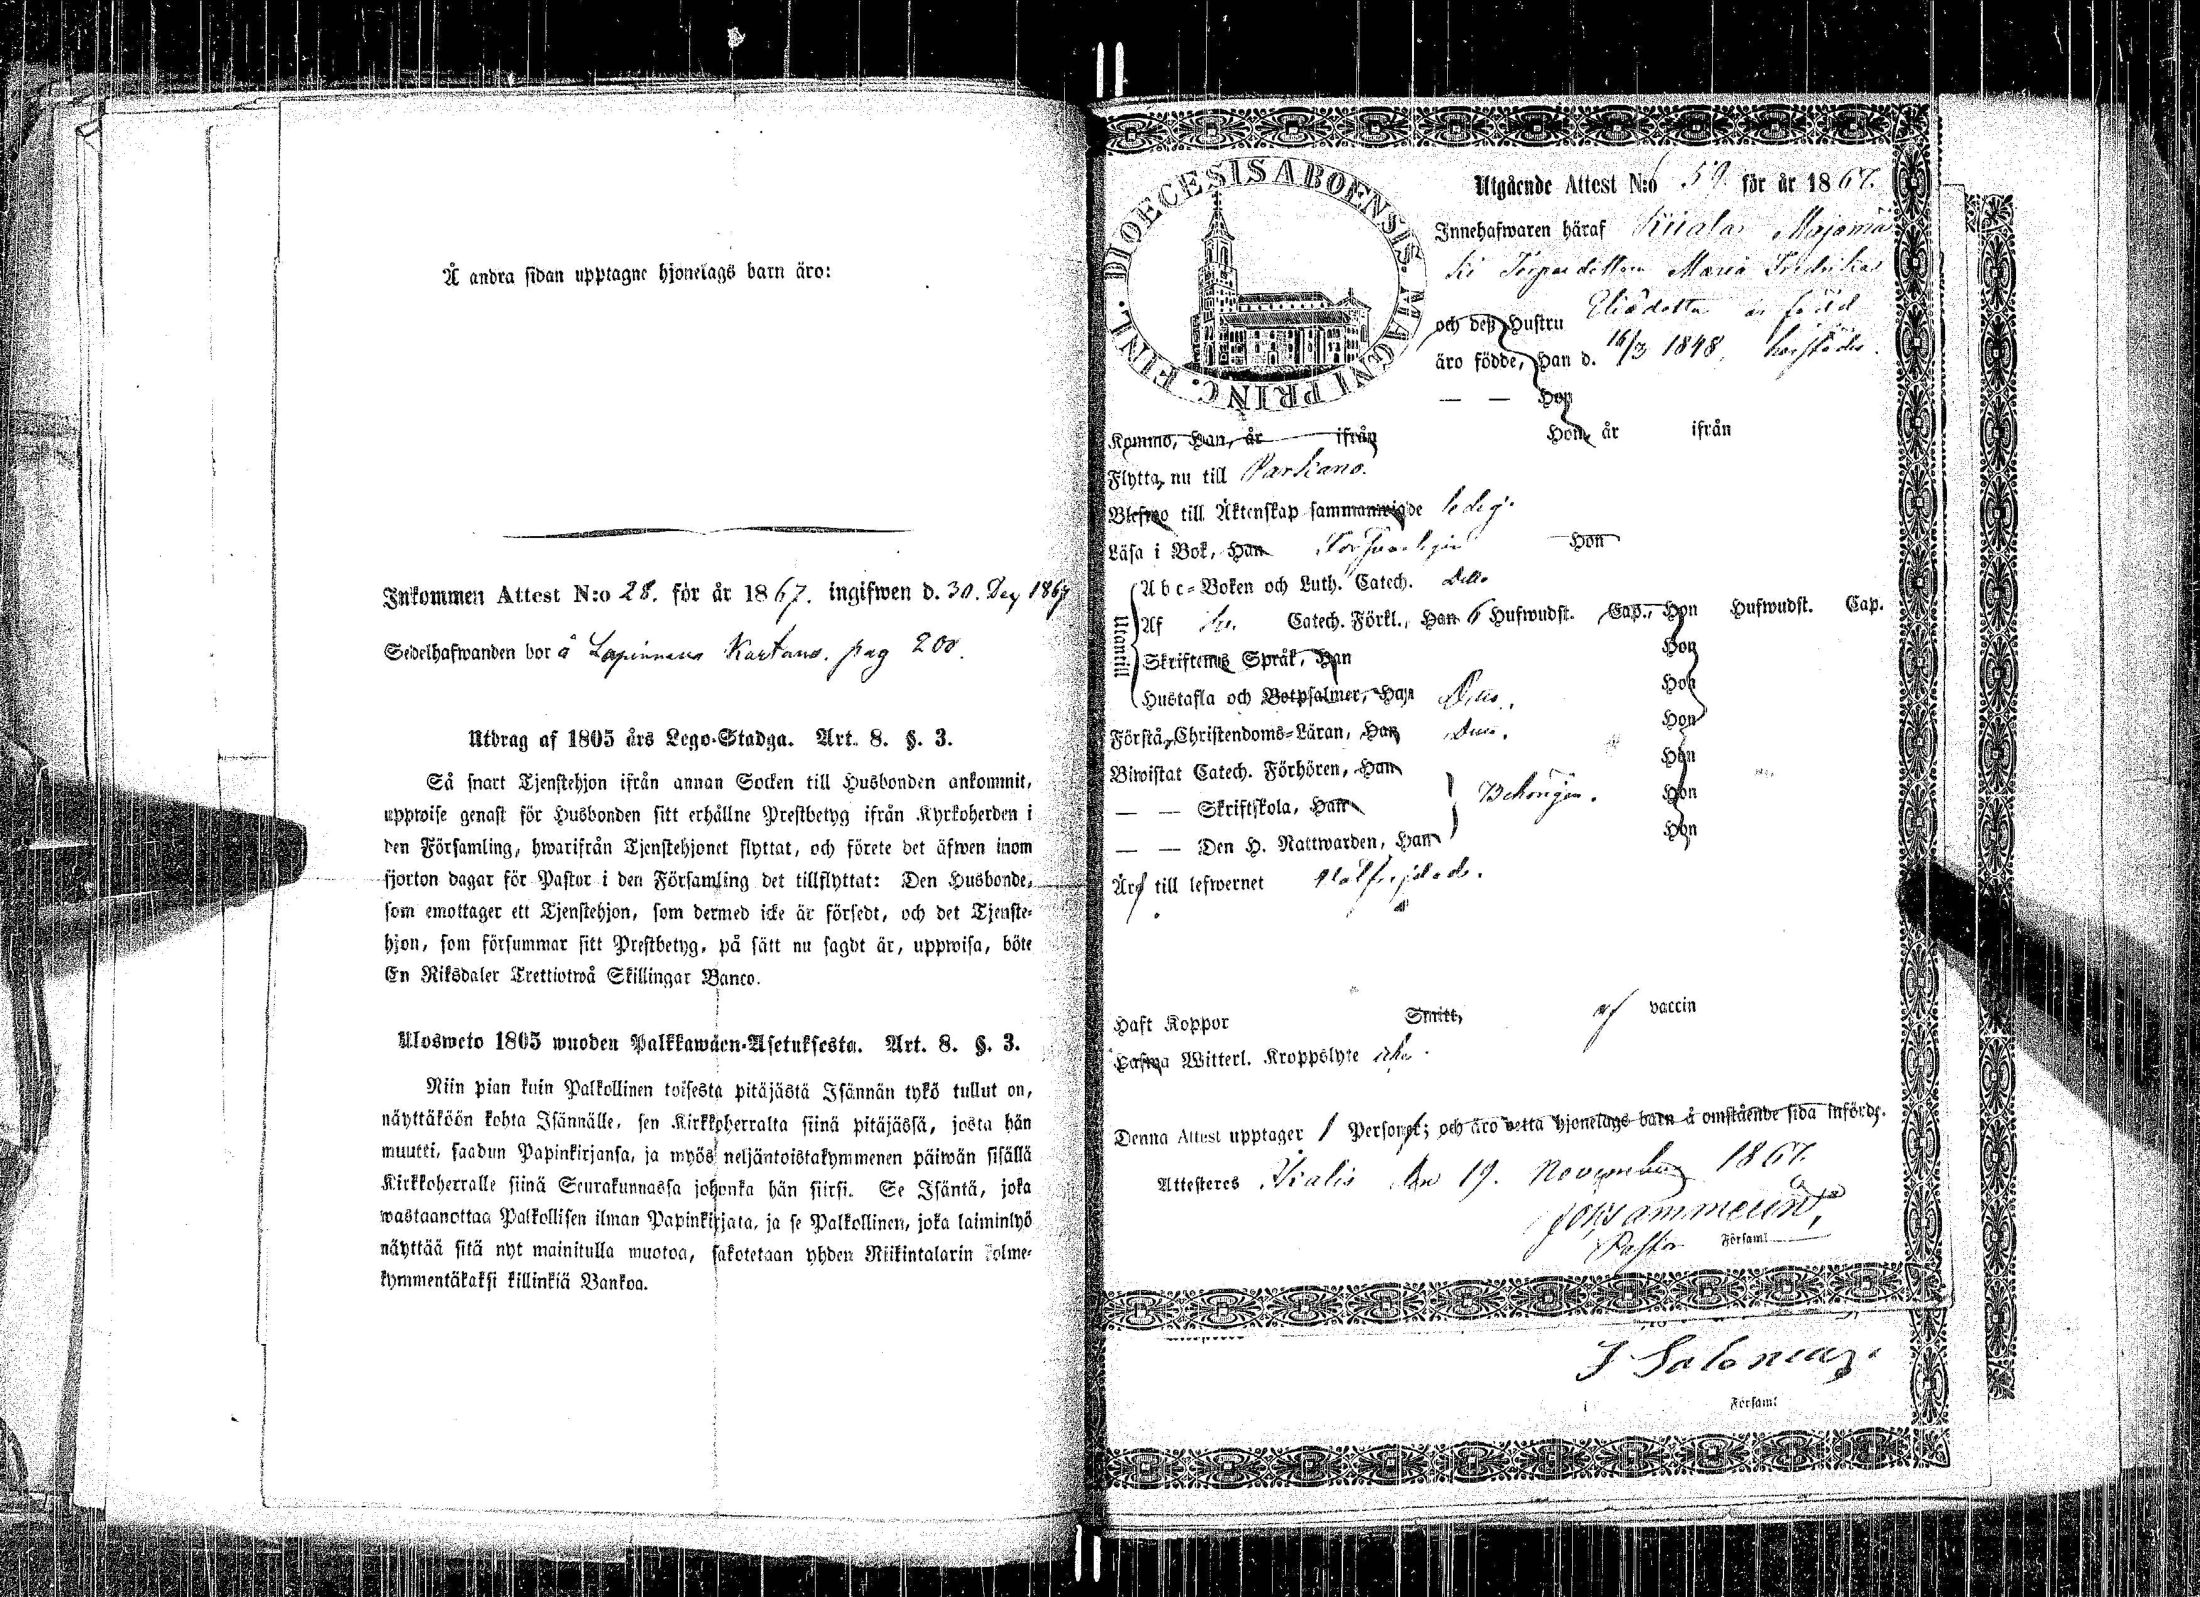 Å andra sidan upptagne hjonelags barn äro:
Inkommen Attest N:o 28. för år 1867. ingifwen d. 30. Dec 1867
Sedelhafwanden bor å Kartano. pag 200.
Utdrag af 1805 års Lego-Stadga. Art. 8. §. 3.
Så snart Tjenstehjon ifrån annan Socken till Husbonden ankommit,
uppwise genast för Husbonden sitt erhållne Prestbetyg ifrån Kyrkoherden i
den Församling, hwarifrån Tjenstehjonet flyttat, och förete det äfwen inom
fjorton dagar för Pastor i den Församling det tillflyttat: Den Husbonde,
som emottager ett Tjenstehjon, som dermed icke är försedt, och det Tjenste-
hjon, som försummar sitt Prestbetyg, på sätt nu sagdt är, uppwisa, böte
En Riksdaler Trettiotwå Skillingar Banco.
Ulosweto 1805 wuoden Palkkawäen-Asetuksesta. Art. 8. §. 3.
Niin pian kuin Palkollinen toisesta pitäjästä Isännän tykö tullut on,
näyttäköön kohta Isännälle, sen Kirkkoherralta siinä pitäjässä, josta hän
muutti, saadun Papinkirjansa, ja myös neljäntoistakymmenen päiwän sisällä
Kirkkoherralle siinä Seurakunnassa johonka hän siirsi. Se Isäntä, joka
wastaanottaa Palkollisen ilman Papinkirjata, ja se Palkollinen, joka laiminlyö
näyttää sitä nyt mainitulla muotoa, sakotetaan yhden Riikintalarin kolme-
kymmentäkaksi killinkiä Bankoa.
DIOECESIS ABOENSIS. MAGNI PRINC. FINL.
Utgående Attest N:o 59. för år 1867.
Innehafwaren häraf
Maria Fredrika
och deß Hustru är född
äro födde, Han d. 16/3 1848, härstädes.
— — Hon
Kommo, Han, år ifrån Hon, år ifrån
Flytta, nu till Parkano.
Blefwo till Äktenskap sammanwigde ledig.
Läsa i Bok, Han Försvarligen Hon
Utantill
Abc-Boken och Luth. Catech. Dito
Af Catech. Förkl., Han 6 Hufwudst. Cap., Hon Hufwudst. Cap.
Skriftenes Språk, Han Hon
Hustafla och Botpsalmer, Han Dito. Hon
Förstå, Christendoms-Läran, Han Dito. Hon
Biwistat Catech. Förhören, Han Hon
— — Skriftskola, Han Behörigen. Hon
— — Den H. Nattwarden, Han Hon
Äro till lefwernet välfrejdade.
Haft Koppor Smitt, af vaccin
Hafwa Witterl. Kroppslyte icke.
Denna Attest upptager 1 Personer; och äro detta hjonelags barn å omstående sida införde.
Attesteres Ikalis den 19. November 1867.
Pastor Församl
Församl